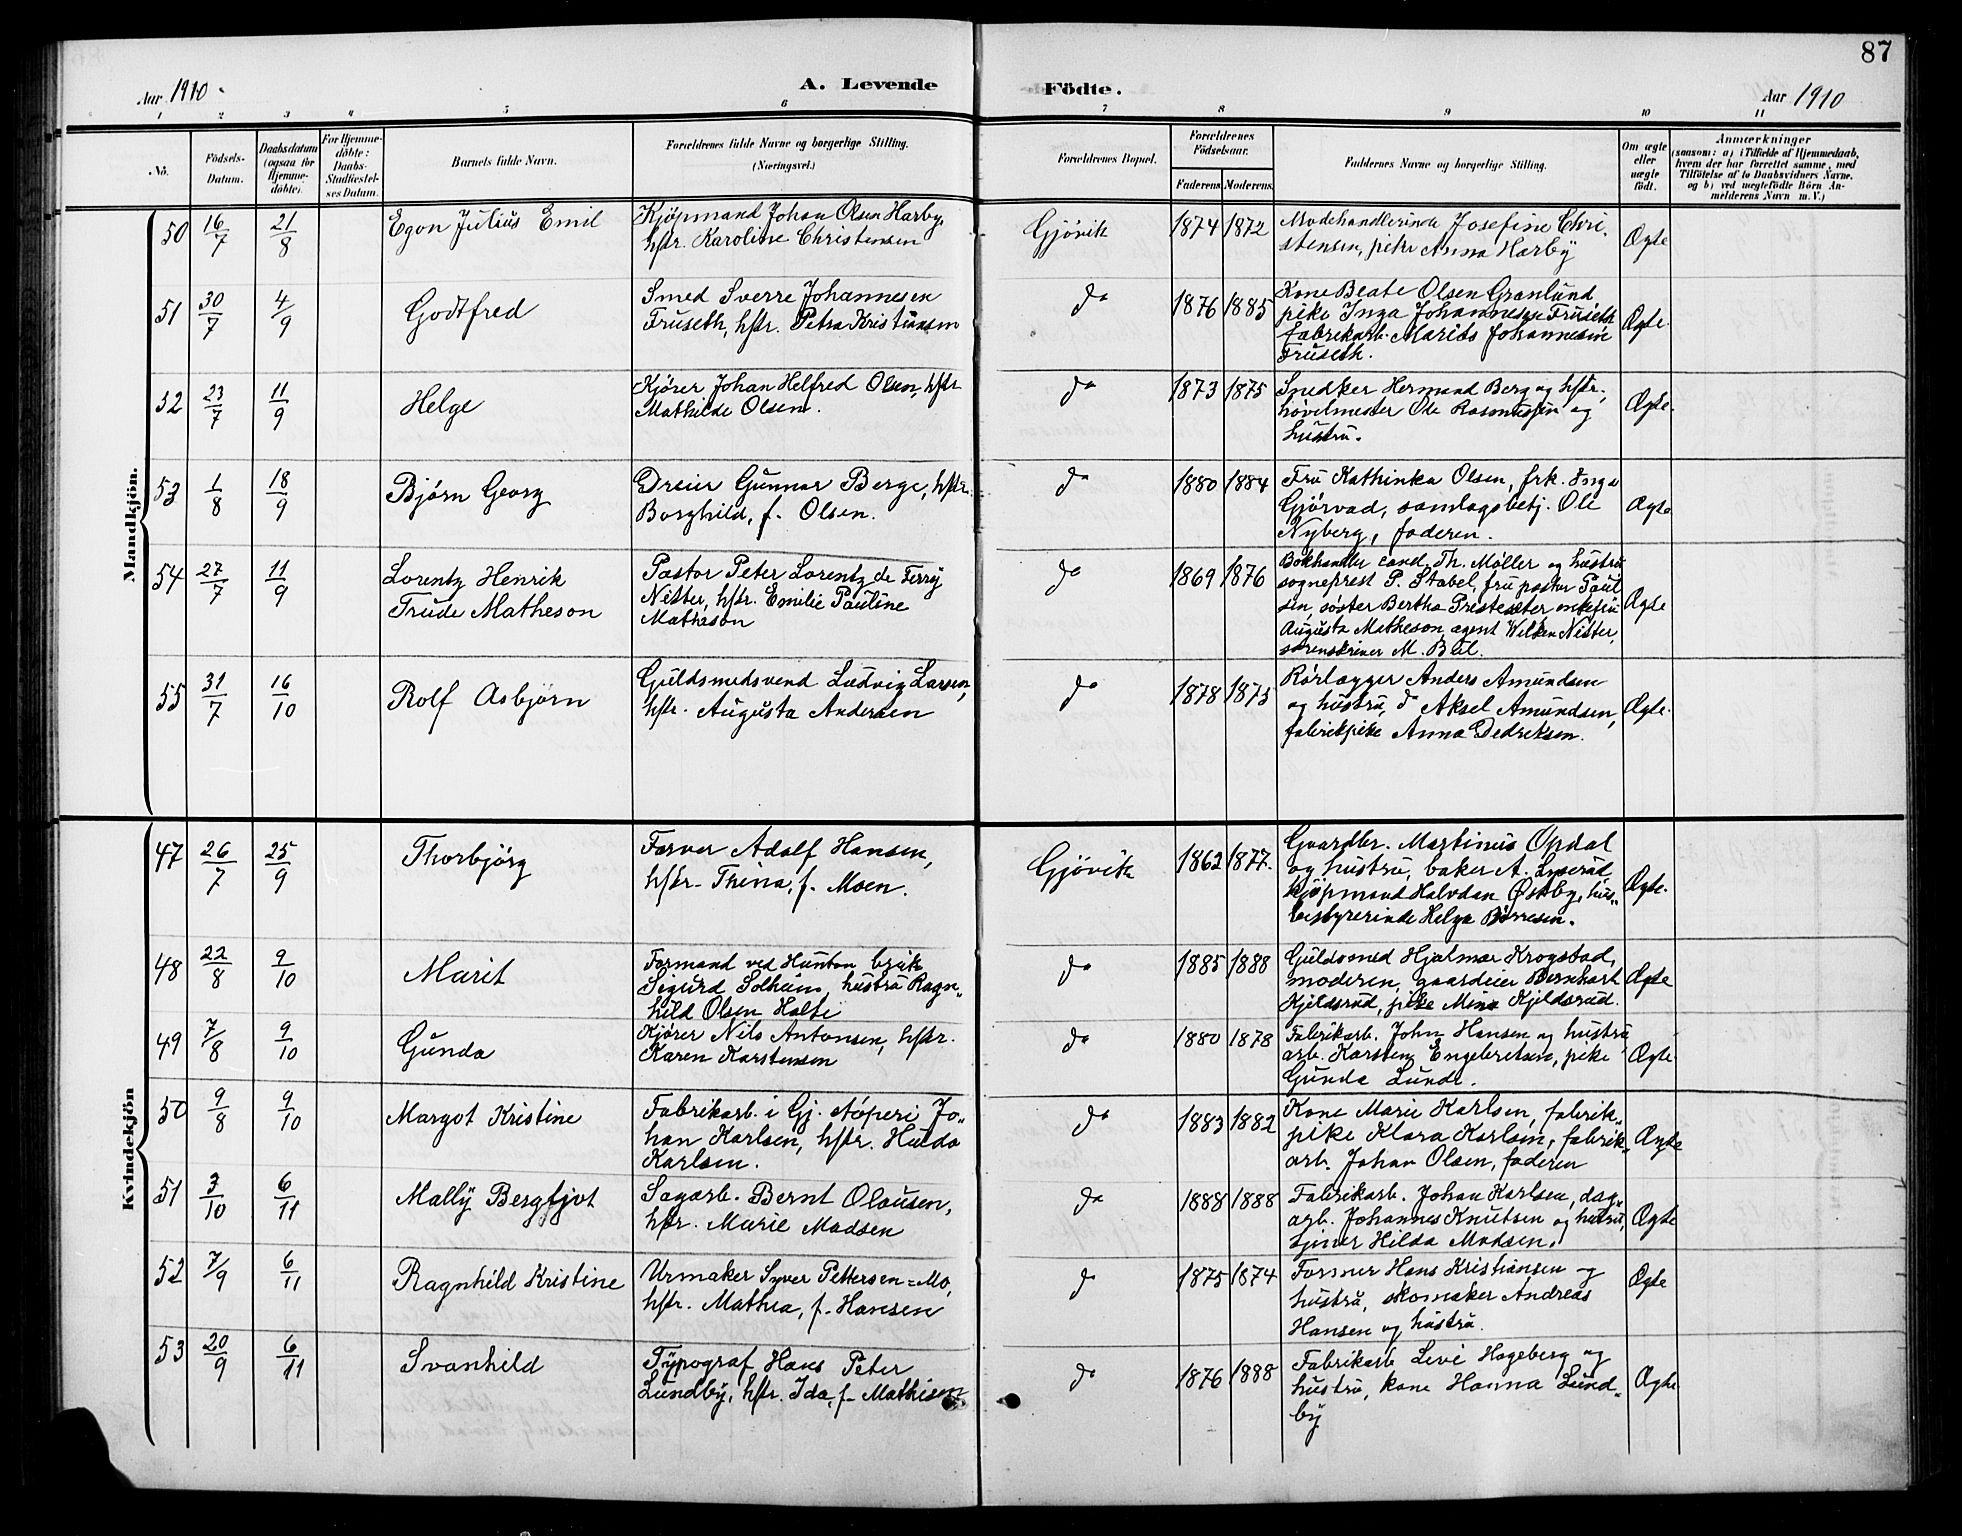 87
Aar 1910.
A. Levende Födte.
Aar 1910
1 2 3 4 5 6 7 8 9 10 11
No.
Födsels-
Datum.
Daabsdatum
(ogsaa for
Hjemme-
döbte).
For Hjemme-
döbte:
Daabs-
Stadfæstel-
ses Datum.
Barnets fulde Navn.
Forældrenes fulde Navne og borgerlige Stilling.
(Næringsvei.)
Forældrenes Bopæl.
Forældrenes
Födselsaar.
Faderens. Moderens.
Faddernes Navne og borgerlige Stilling.
Om ægte
eller
uægte
födt.
Anmærkninger
(saasom: a) i Tilfælde af Hjemmedaab,
hvem der har forrettet samme, med
Tilföielse af to Daabsvidners Navne.
og b) ved uægtefödte Börn An-
melderens Navn m. V.)
Mandkjön.
50 16/7 21/8 Egon Julius Emil
Kjöpmand Johan Olsen Harby,
hstr. Karoline Christensen
Gjövik 1874 1872
Modehandlerinde Josefine Chri-
stensen, pike Anna Harby
Ægte
51 30/7 4/9 Godtfred
Smed Sverre Johannesen
Fruseth, hstr. Petra Kristiansen
do 1876 1885
Kone Beate Olsen Granlund
pike Inga Johannesen Fruseth
fabrikarb. Marius Johannesen
Fruseth.
Ægte.
52 23/7 11/9 Helge
Kjörer Johan Helfred Olsen, hstr
Mathilde Olsen.
do 1873 1875
Snedker Hermand Berg og hstr.,
hövelmester Ole Rasmussen og
hustru.
Ægte.
53 1/8 18/9 Björn Georg
Dreier Gunnar Berge, hstr.
Borghild, f. Olsen.
do 1880 1884
Fru Kathinka Olsen, frk. Inga
Gjörvad, samlagsbetj. Ole
Nyberg, faderen.
Ægte
54 27/7 11/9 Lorentz Henrik
Trude Matheson
Pastor Peter Lorentz de Ferry
Nitter, hstr. Emilie Pauline
Matheson
do 1869 1876
Bokhandler cand. Th. Möller og hustru
sogneprest P. Stabel, fru pastor Paul
sen, söster Bertha Prestesæter, enkefru
Augusta Matheson, agent Wilken Nitter,
sorenskriver M. Bul.
Ægte
55 31/7 16/10 Rolf Asbjörn
Guldsmedsvend Ludvig Larsen,
hstr. Augusta Andersen
do 1878 1875
Rörlægger Anders Amundsen
og hustru, do Aksel Amundsen,
fabrikpike Anna Dedriksen.
Ægte.
Kvindekjön
47 26/7 25/9 Thorbjörg
Farver Adolf Hansen,
hstr. Thina, f. Moen.
Gjövik 1862 1877.
Gaardbr. Martinus Opdal
og hustru, baker A. Lyserud
kjöpmand Halvdan Østby, hus-
bestyrerinde Helga Börresen.
Ægte.
48 22/8 9/10 Marit
Formand ved Hunton bruk
Sigurd Solheim, hustru Ragn-
hild Olsen Holte
do 1885 1888
Guldsmed Hjalmar Krogstad,
moderen, gaardeier Bernhart
Kjeldsrud, pike Mina Kjeldsrud.
Ægte
49 7/8 9/10 Gunda
Kjörer Nils Antonsen, hstr.
Karen Karstensen
do 1880 1878
Fabrikarb. John Hansen og hustru
arb. Karsten Engebretsen, pike
Gunda Lunde.
Ægte
50 9/8 9/10 Margot Kristine
Fabrikarb. i Gj. Stöperi Jo-
han Karlsen, hstr. Hulda
Karlsen.
do 1883 1882
Kone Marie Karlsen, fabrik-
pike Klara Karlsen, fabrik-
arb. Johan Olsen, faderen
Ægte
51 3/10 6/11 Mally Bergljot
Sagarb. Bernt Olausen,
hstr. Marie Madsen
do 1888 1888
Fabrikarb. Johan Karlsen, dag-
arb. Johannes Knutsen og hustru,
tjener Hilda Madsen.
Ægte
52 7/9 6/11 Ragnhild Kristine
Urmaker Syver Pettersen-Mo,
hstr. Mathea, f. Hansen
do 1875 1874
Former Hans Kristiansen og
hustru, skomaker Andreas
Hansen og hustru.
Ægte
53 20/9 6/11 Svanhild
Typograf Hans Peter
Lundby, hstr. Ida, f. Mathisen
do 1876 1888
Fabrikarb Levi Hageberg og
hustru, kone Hanna Lund-
by
Ægte